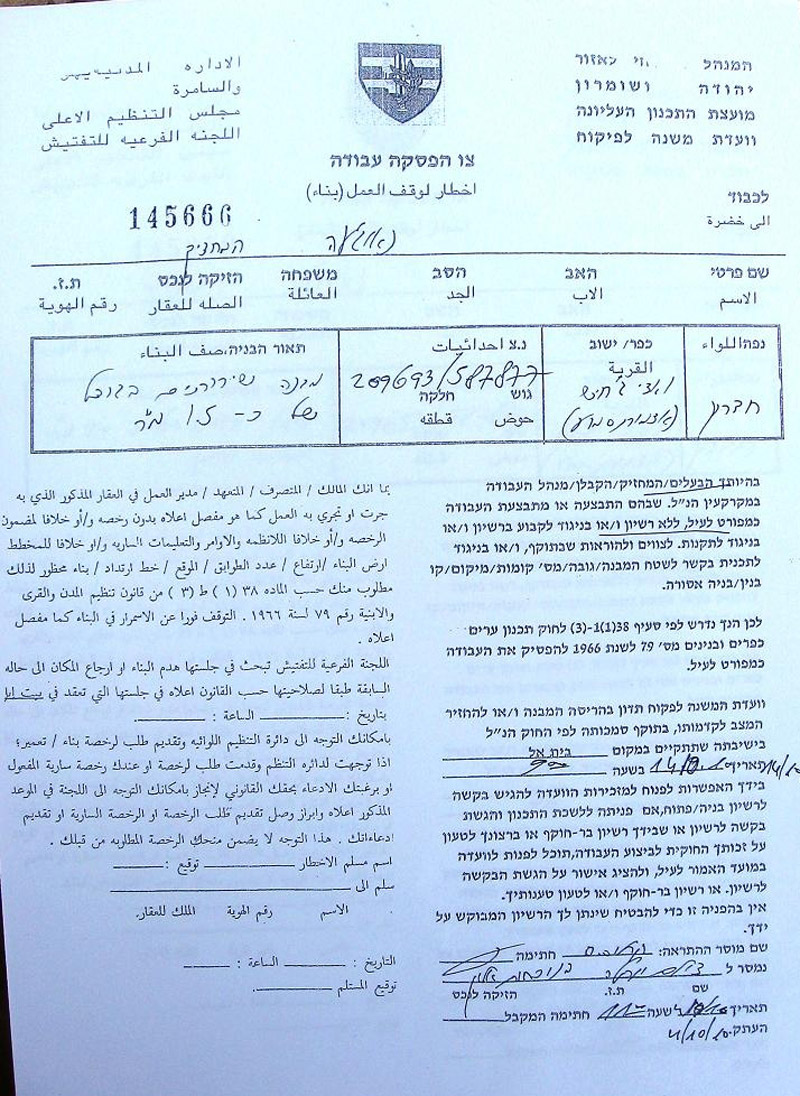 המנהל
יהודה ושומרון
מועצת התכנון העליונה
וועדת משנה לפיקוח
الاداره المدنيه
والسامرة
مجلس التنظيم الاعلى
اللجنه الفرعيه للتفتيش
צו הפסקה עבודה
اخطار لوقف العمل (بناء)
לכבוד
الى حضرة
145666
שם פרטי האב הסב משפחה הזיקה לנכס ת.ז.
الاسم الاب الجد العائلة الصله للعقار رقم الهوية
נפה/אללواء
כפר/ ישוב
القرية
נ.צ אחדיאتيات
209693/587877
גוש חלקה
حوض قطقه
תאור הבניה،صف البناء
חברון
מבנה שירותים בגודל
של כ- 1.5 מ"ר
בהיותך הבעלים/המחזיק/הקבלן/מנהל העבודה
במקרקעין הנ"ל. שבהם התבצעה או מתבצעת העבודה
כמפורט לעיל, ללא רשיון ו/או בניגוד לקבוע ברשיון ו/או
בניגוד לתקנות. לצווים ולהוראות שבתוקף, ו/או בניגוד
לתכנית בקשר לשטח המבנה/גובה/מס' קומות/מיקום/קו
בנין/בניה אסורה.
לכן הנך נדרש לפי סעיף 38(1)-1(3) לחוק תכנון ערים
כפרים ובנינים מס' 79 לשנת 1966 להפסיק את העבודה
כמפורט לעיל.
וועדת המשנה לפקוח תדון בהריסת המבנה ו/או להחזיר
המצב לקדמותו, בתוקף סמכותה לפי החוק הנ"ל
בישיבתה שתתקיים במקום בית אל
תאריך בשעה
בידך האפשרות לפנות למזכירות הוועדה להגיש בקשה
לרשיון בניה/פתוח,אם פניתה ללשכת התכנון והגשת
בקשה לרשיון או שבידך רשיון בר-חוקף או ברצונך לטעון
על זכותך החוקית לביצוע העבודה,תוכל לפנות לוועדה
במועד האמור לעיל, ולהציג אישור על הגשת הבקשה
לרשיון. או רשיון בר-חוקף ו/או לטעון טענותיך.
אין בהפניה זו כדי להבטיח שינתן לך הרשיון המבוקש על
ידך.
שם מוסר ההתראה: חתימה
נמסר ל
שם ת.ז. הזיקה לנכס
תאריך לשעה חתימה המקבל
העתק.
بما انك المالك / المتصرف / المتعهد / مدير العمل في العقار المذكور الذي به
جرت او تجري به العمل كما هو مفصل اعلاه بدون رخصه و/أو خلافا لمضمون
الرخصه و/أو خلافا للانظمه والاوامر والتعليمات الساريه و/او خلافا للمخطط
ارض البناء /ارتفاع / عدد الطوابق / الموقع / خط ارتداد / بناء محظور لذلك
مطلوب منك حسب الماده ٣٨ (١) ط (٣) من قانون تنظيم المدن والقرى
والابنية رقم ٧٩ لسنة ١٩٦٦ . التوقف فورا عن الاسمرار في البناء كما مفصل
اعلاه .
اللجنة الفرعية للتفتيش تبحث في جلستها هدم البناء او ارجاع المكان الى حاله
السابقة طبقا لصلاحيتها حسب القانون اعلاه في جلستها التي تعقد في بيت ايل
بتاريخ : الساعة :
بامكانك التوجه الى دائرة التنظيم اللوائيه وتقديم طلب لرخصة بناء / تعمير؛
اذا توجهت لدائره التنظم وقدمت طلب لرخصة او عندك رخصة سارية المفعول
او برغبتك الادعاء بحقك القانوني لإنجاز بأمكانك التوجه الى اللجنة في الموعد
المذكور اعلاه وابراز وصل تقديم طلب الرخصة او الرخصة السارية او تقديم
إدعاءاتك . هذا التوجه لا يضمن منحك الرخصة المطلوبه من قبلك .
اسم مسلم الاخطار توقيع :
سلم الى
الاسم رقم الهوية الملك للعقار.
التاريخ : الساعة :
توقيع المستلم